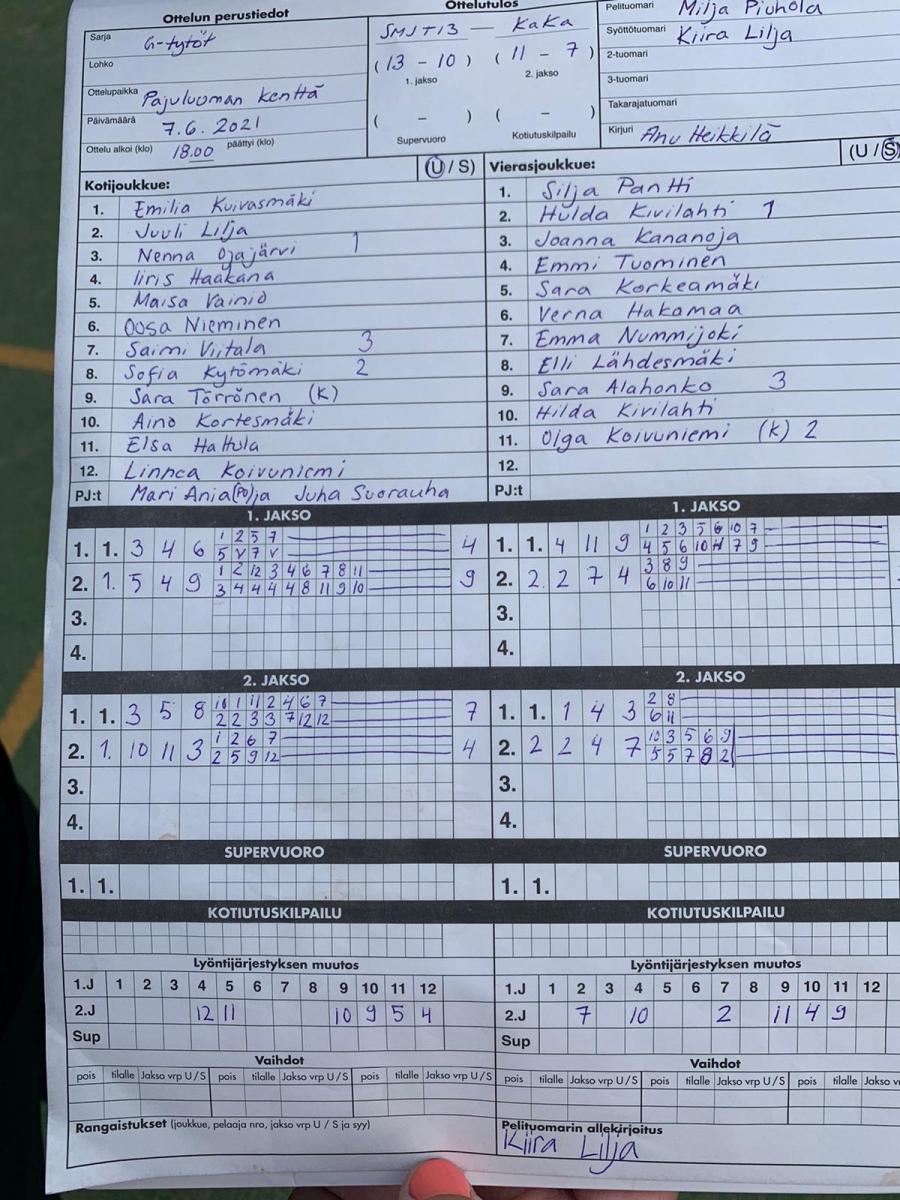 Ottelun perustiedot
Sarja G-tytöt
Lohko
Ottelupaikka Pajuluoman kenttä
Päivämäärä 7.6.2021
Ottelu alkoi (klo) 18.00 päättyi (klo)
Ottelutulos
SMJT13 - KaKa
(13 - 10) (11 - 7)
1. jakso 2. jakso
( - ) ( - )
Supervuoro Kotiutuskilpailu
Pelituomari Milja Piuhola
Syöttötuomari Kiira Lilja
2-tuomari
3-tuomari
Takarajatuomari
Kirjuri Anu Heikkilä
Kotijoukkue: (U / S)
1. Emilia Kuivasmäki
2. Juuli Lilja
3. Nenna Ojajärvi 1
4. Iiris Haakana
5. Maisa Vainio
6. Oosa Nieminen
7. Saimi Viitala 3
8. Sofia Kytömäki 2
9. Sara Törrönen (K)
10. Aino Kortesmäki
11. Elsa Hattula
12. Linnea Koivuniemi
PJ:t Mari Ania(po)ja Juha Suorauha
Vierasjoukkue: (U / S)
1. Silja Pantti
2. Hulda Kivilahti 1
3. Joanna Kananoja
4. Emmi Tuominen
5. Sara Korkeamäki
6. Verna Hakamaa
7. Emma Nummijoki
8. Elli Lähdesmäki
9. Sara Alahonko 3
10. Hilda Kivilahti
11. Olga Koivuniemi (K) 2
12.
PJ:t
1. JAKSO
1. 1. 3 4 6 1 2 5 7 4
5 V 7 V
2. 1. 5 4 9 1 2 12 3 4 6 7 8 11 9
3 4 4 4 4 8 11 9 10
3.
4.
1. JAKSO
1. 1. 4 11 9 1 2 3 5 6 10 7
4 5 6 10 11 7 9
2. 2. 2 7 4 3 8 9
6 10 11
3.
4.
2. JAKSO
1. 1. 3 5 8 10 1 11 2 4 6 7 7
2 2 3 3 7 12 12
2. 1. 10 11 3 1 2 6 7 4
2 5 9 12
3.
4.
2. JAKSO
1. 1. 1 4 3 2 8
6 11
2. 2 2 4 7 10 3 5 6 9
5 5 7 8 2
3.
4.
SUPERVUORO
1. 1.
SUPERVUORO
1. 1.
KOTIUTUSKILPAILU
KOTIUTUSKILPAILU
Lyöntijärjestyksen muutos
1.J 1 2 3 4 5 6 7 8 9 10 11 12
2.J 12 11 10 9 5 4
Sup
Lyöntijärjestyksen muutos
1.J 1 2 3 4 5 6 7 8 9 10 11 12
2.J 7 10 2 11 4 9
Sup
Vaihdot
pois tilalle Jakso vrp U / S pois tilalle Jakso vrp U / S pois tilalle Jakso vrp U / S
Vaihdot
pois tilalle Jakso vrp U / S pois tilalle Jakso vrp U / S pois tilalle Jakso v
Rangaistukset (joukkue, pelaaja nro, jakso vrp U / S ja syy)
Pelituomarin allekirjoitus
Kiira Lilja